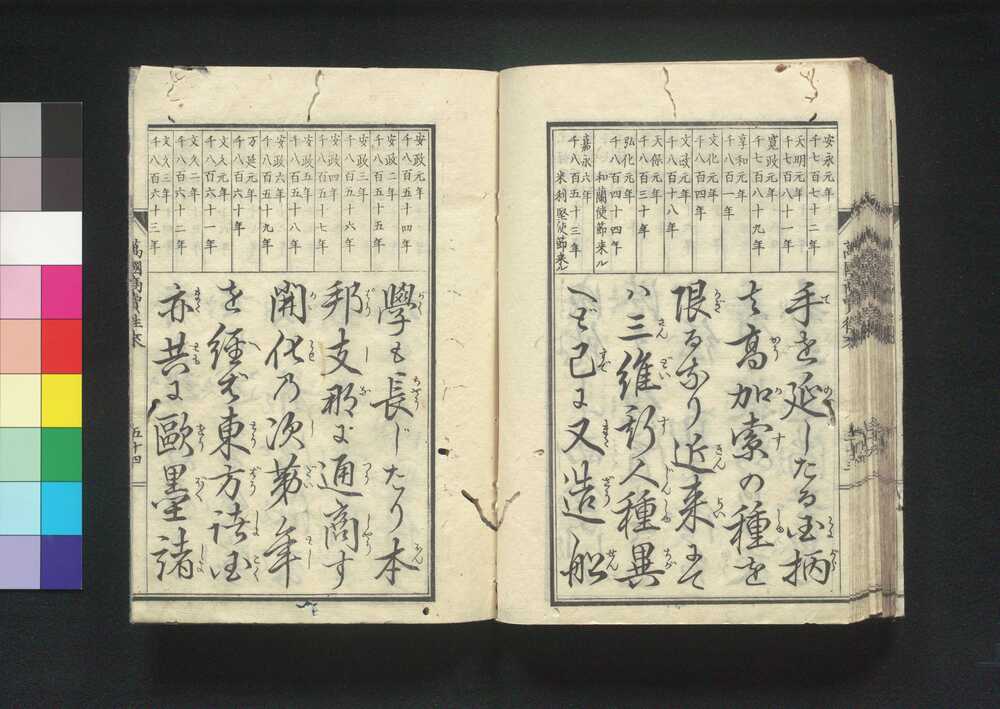 安永元年
千七百七十二年
天明元年
千七百八十一年
寛政元年
千七百八十九年
享和元年
千八百一年
文化元年
千八百四年
文政元年
千八百十八年
天保元年
千八百三十年
弘化元年
千八百四十四年
和蘭使節来ル
嘉永六年
千八百五十三年
米利堅使節来ル
手を延したる国柄
て高加索の種を
限るなり近来にて
ハ三維新人種異
へど已に又造船
安政元年
千八百五十四年
安政二年
千八百五十五年
安政三年
千八百五十六年
安政四年
千八百五十七年
安政五年
千八百五十八年
安政六年
千八百五十九年
万延元年
千八百六十年
文久元年
千八百六十一年
文久二年
千八百六十二年
文久三年
千八百六十三年
學も長じたり本
邦支那に通商す
開化乃次第年
を経て東方諸国
亦共に歐墨諸
萬國商賣往来
五十四